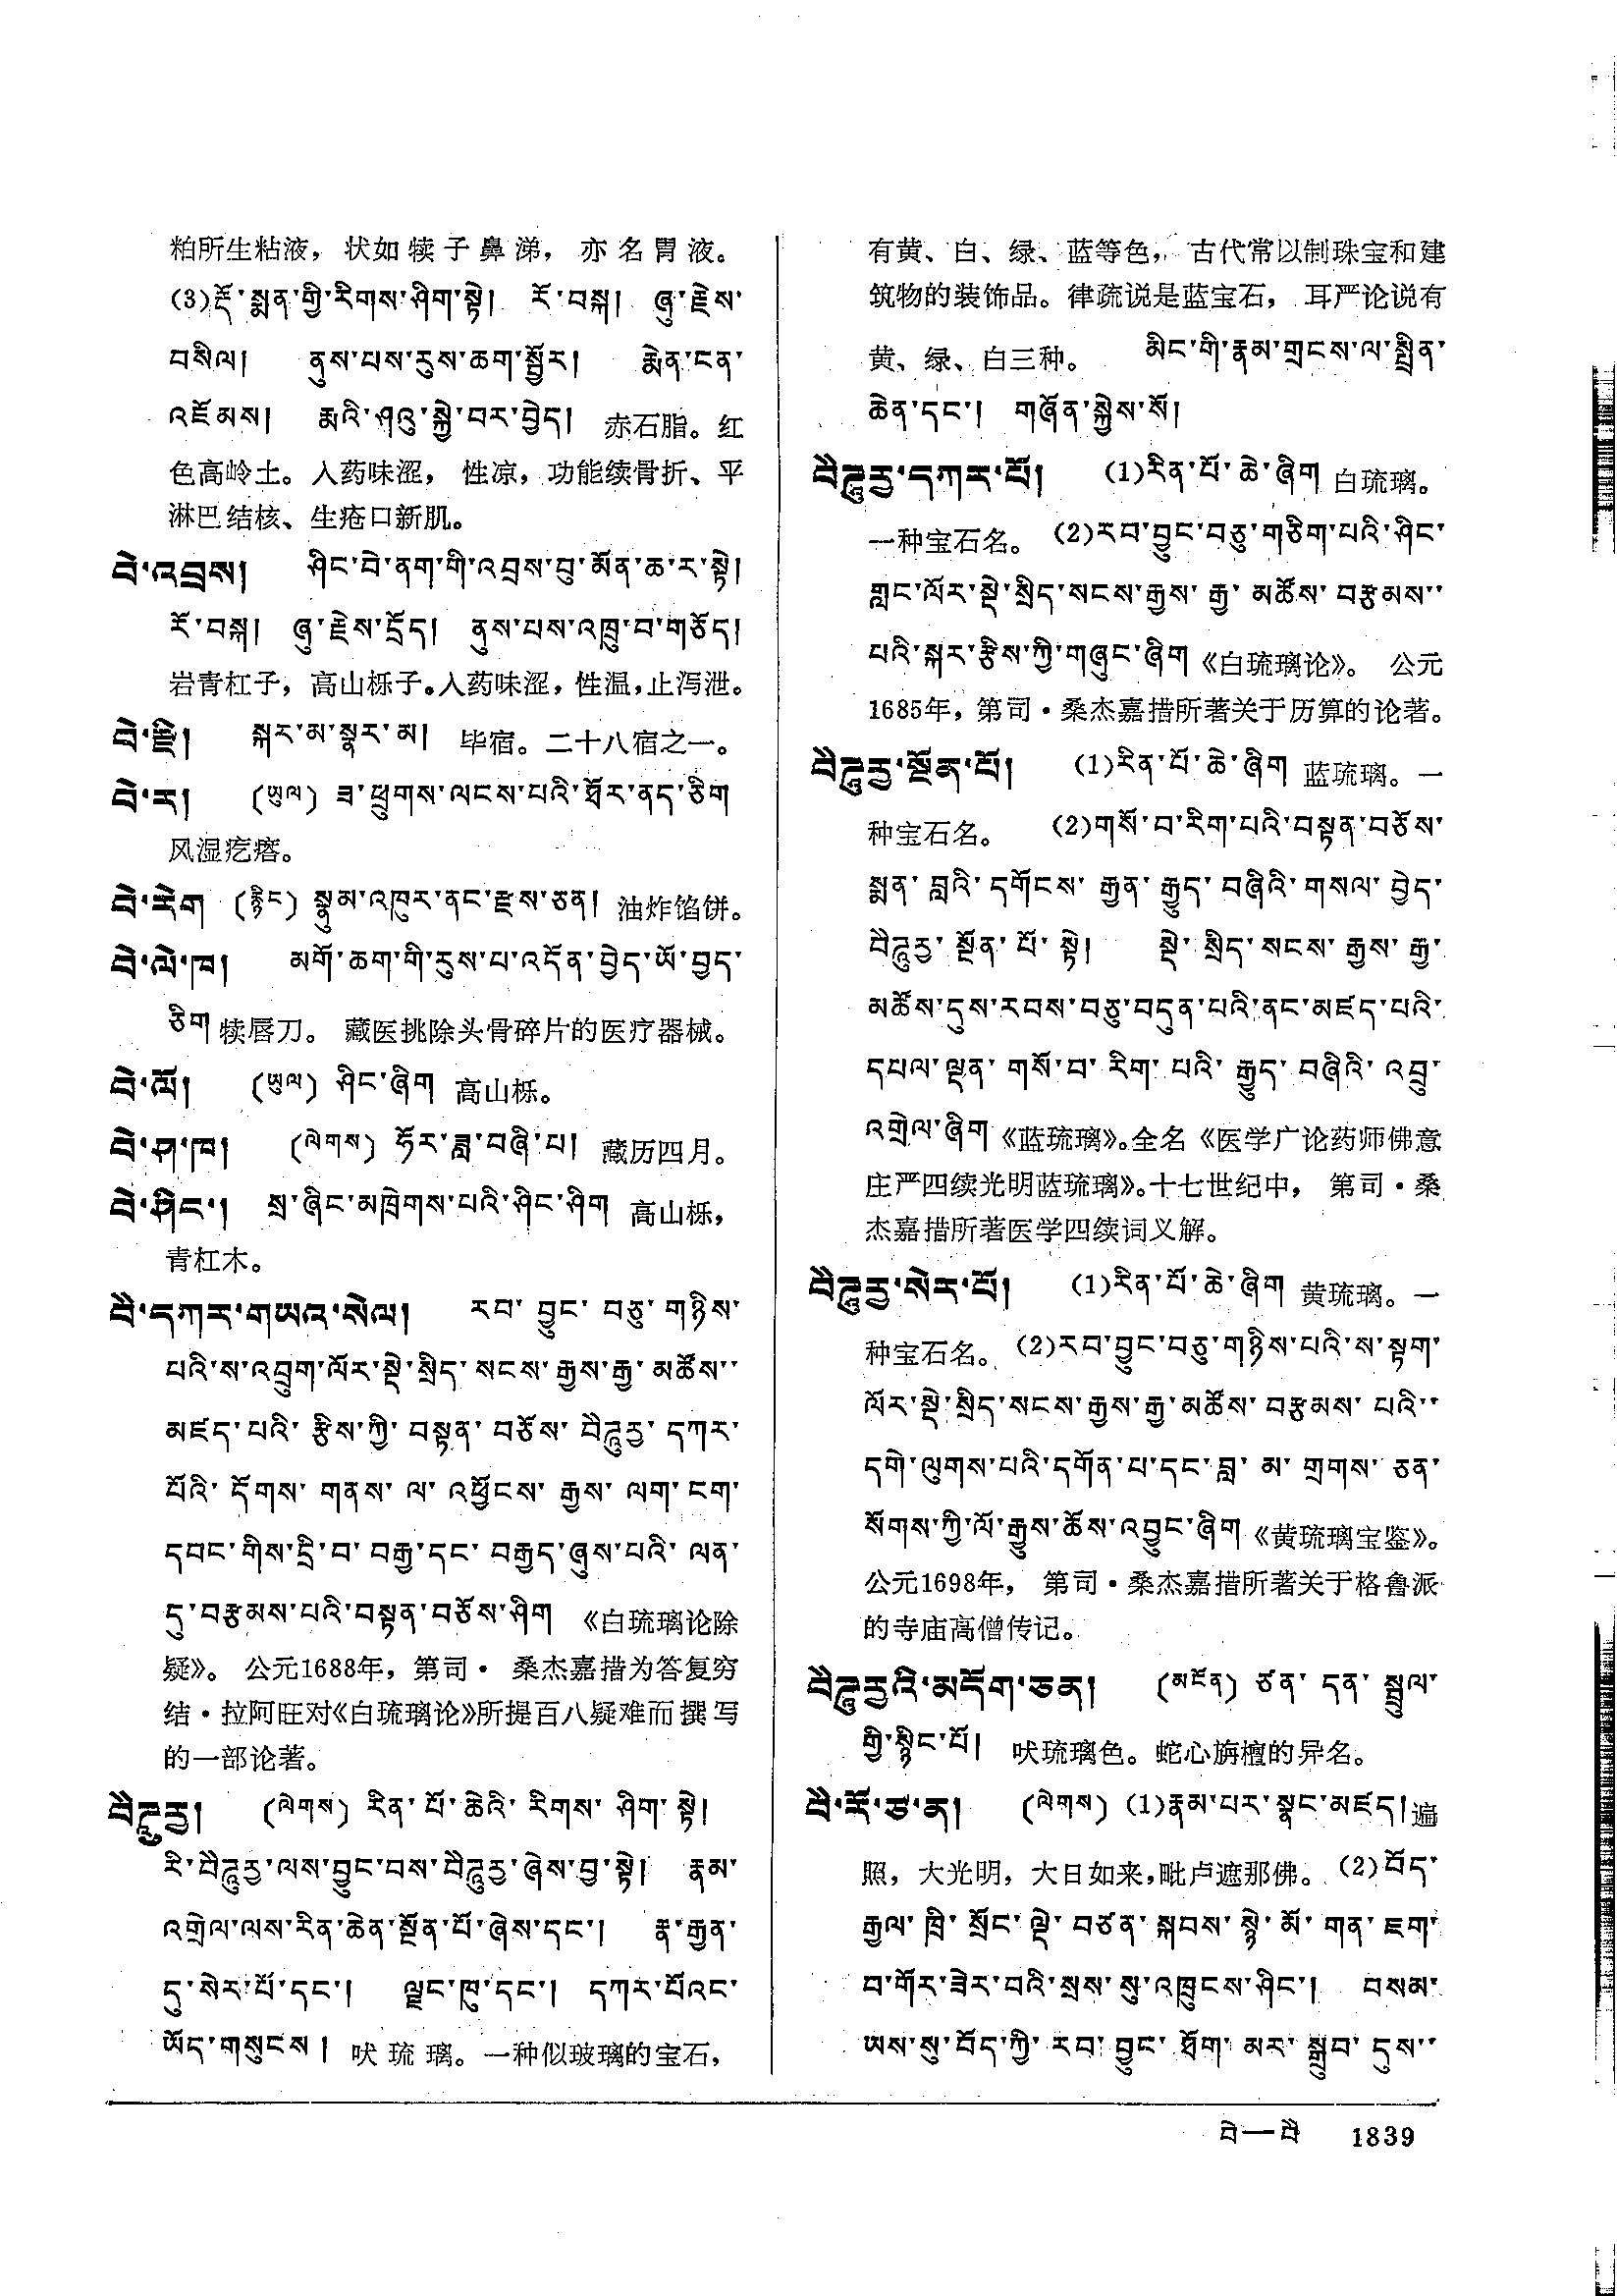 粕所生粘液，状如犊子鼻涕，亦名胃液。
(3)རྡོ་སྨན་གྱི་རིགས་ཤིག་སྟེ། རོ་བསྐ། ཞུ་རྗེས་
བསིལ། ནུས་པས་རུས་ཆག་སྦྱོར། རྨེན་ངན་
འཇོམས། རྨའི་ཤའུ་སྐྱེ་བར་བྱེད། 赤石脂。红
色高岭土。入药味涩，性凉，功能续骨折、平
淋巴结核、生疮口新肌。
བེ་འབྲས། ཤིང་བེ་ནག་གི་འབྲས་བུ་མོན་ཆ་ར་སྟེ།
རོ་བསྐ། ཞུ་རྗེས་དྲོད། ནུས་པས་འཁྲུ་བ་གཅོད།
岩青杠子，高山栎子。入药味涩，性温，止泻泄。
བེ་རྫི། སྐར་མ་སྣར་མ། 毕宿。二十八宿之一。
བེ་ར། (ཡུལ) ཟ་ཕྲུགས་ལངས་པའི་ཐོར་ནད་ཅིག
风湿疙瘩。
བེ་རེག (རྙིང) སྣུམ་འཁུར་ནང་རྫས་ཅན། 油炸馅饼。
བེ་ལེ་ཁ། མགོ་ཆག་གི་རུས་པ་འདོན་བྱེད་ཡོ་བྱད་
ཅིག 犊唇刀。藏医挑除头骨碎片的医疗器械。
བེ་ལོ། (ཡུལ) ཤིང་ཞིག 高山栎。
བེ་ཤ་ཁ། (ལེགས) ཧོར་ཟླ་བཞི་པ། 藏历四月。
བེ་ཤིང་། སྲ་ཞིང་མཁྲེགས་པའི་ཤིང་ཤིག 高山栎，
青杠木。
བེེ་དཀར་གཡའ་སེལ། རབ་བྱུང་བཅུ་གཉིས་
པའི་ས་འབྲུག་ལོར་སྡེ་སྲིད་སངས་རྒྱས་རྒྱ་མཚོས་་
མཛད་པའི་རྩིས་ཀྱི་བསྟན་བཅོས་བཻཌཱུརྱ་དཀར་
པོའི་དོགས་གནས་ལ་འཕྱོངས་རྒྱས་ལག་ངག་
དབང་གིས་དྲི་བ་བརྒྱ་དང་བརྒྱད་ཞུས་པའི་ལན་
དུ་བརྩམས་པའི་བསྟན་བཅོས་ཤིག 《白琉璃论除
疑》。公元1688年，第司·桑杰嘉措为答复穷
结·拉阿旺对《白琉璃论》所提百八疑难而撰写
的一部论著。
བཻཌཱུརྱ། (ལེགས) རིན་པོ་ཆེའི་རིགས་ཤིག་སྟེ།
རི་བཻཌཱུརྱ་ལས་བྱུང་བས་བཻཌཱུརྱ་ཞེས་བྱ་སྟེ། རྣམ་
འགྲེལ་ལས་རིན་ཆེན་སྔོན་པོ་ཞེས་དང་། རྣ་རྒྱན་
དུ་སེར་པོ་དང་། ལྗང་ཁུ་དང་། དཀར་པོའང་
ཡོད་གསུངས། 吠琉璃。一种似玻璃的宝石，
有黄、白、绿、蓝等色，古代常以制珠宝和建
筑物的装饰品。律疏说是蓝宝石，耳严论说有
黄、绿、白三种。 མིང་གི་རྣམ་གྲངས་ལ་སྤྲིན་
ཆེན་དང་། གཞོན་སྐྱེས་སོ།
བཻཌཱུརྱ་དཀར་པོ། (1)རིན་པོ་ཆེ་ཞིག 白琉璃。
一种宝石名。 (2)རབ་བྱུང་བཅུ་གཅིག་པའི་ཤིང་
གླང་ལོར་སྡེ་སྲིད་སངས་རྒྱས་རྒྱ་མཚོས་བརྩམས་་
པའི་སྐར་རྩིས་ཀྱི་གཞུང་ཞིག 《白琉璃论》。公元
1685年，第司·桑杰嘉措所著关于历算的论著。
བཻཌཱུརྱ་སྔོན་པོ། (1)རིན་པོ་ཆེ་ཞིག 蓝琉璃。一
种宝石名。 (2)གསོ་བ་རིག་པའི་བསྟན་བཅོས་
སྨན་བླའི་དགོངས་རྒྱན་རྒྱུད་བཞིའི་གསལ་བྱེད་
བཻཌཱུརྱ་སྔོན་པོ་སྟེ། སྡེ་སྲིད་སངས་རྒྱས་རྒྱ་
མཚོས་དུས་རབས་བཅུ་བདུན་པའི་ནང་མཛད་པའི་
དཔལ་ལྡན་གསོ་བ་རིག་པའི་རྒྱུད་བཞིའི་འབྲུ་
འགྲེལ་ཞིག 《蓝琉璃》。全名《医学广论药师佛意
庄严四续光明蓝琉璃》。十七世纪中，第司·桑
杰嘉措所著医学四续词义解。
བཻཌཱུརྱ་སེར་པོ། (1)རིན་པོ་ཆེ་ཞིག 黄琉璃。一
种宝石名。 (2)རབ་བྱུང་བཅུ་གཉིས་པའི་ས་སྟག་
ལོར་སྡེ་སྲིད་སངས་རྒྱས་རྒྱ་མཚོས་བརྩམས་པའི་་
དགེ་ལུགས་པའི་དགོན་པ་དང་བླ་མ་གྲགས་ཅན་
སོགས་ཀྱི་ལོ་རྒྱུས་ཆོས་འབྱུང་ཞིག 《黄琉璃宝鉴》。
公元1698年，第司·桑杰嘉措所著关于格鲁派
的寺庙高僧传记。
བཻཌཱུརྱའི་མདོག་ཅན། (མངོན) ཙན་དན་སྦྲུལ་
གྱི་སྙིང་པོ། 吠琉璃色。蛇心旃檀的异名。
བཻ་རོ་ཙ་ན། (ལེགས) (1)རྣམ་པར་སྣང་མཛད། 遍
照，大光明，大日如来，毗卢遮那佛。 (2)བོད་
རྒྱལ་ཁྲི་སྲོང་ལྡེ་བཙན་སྐབས་སྙེ་མོ་གན་ཇག་
བ་གོར་ཟེར་བའི་སྲས་སུ་འཁྲུངས་ཤིང་། བསམ་
ཡས་སུ་བོད་ཀྱི་རབ་བྱུང་ཐོག་མར་སྒྲུབ་དུས་་
བེ—བཻ 1839